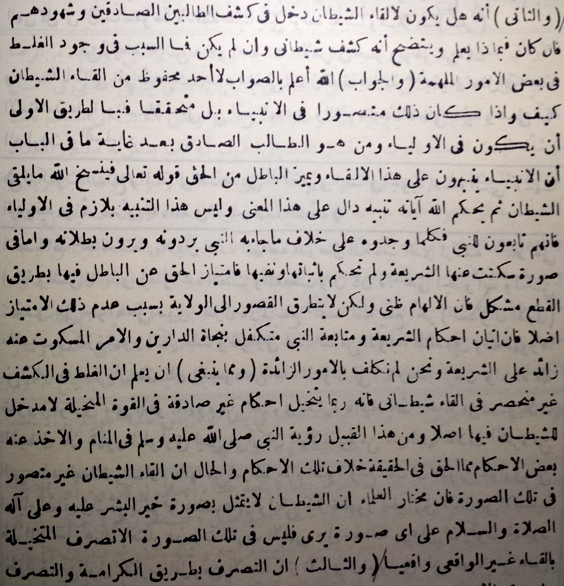 (والثانى) أنه هل يكون لالقاء الشيطان دخل فى كشف الطالبين الصادقين وشهودهم
فان كان فبماذا يعلم ويتضح أنه كشف شيطانى وان لم يكن فما السبب فى وجود الغلط
فى بعض الامور الملهمة (والجواب) الله أعلم بالصواب لا أحد محفوظ من القاء الشيطان
كيف واذا كان ذلك متصورا فى الانبياء بل متحققا فبالطريق الاولى
أن يكون فى الاولياء ومن هو الطالب الصادق بعد غاية ما فى الباب
أن الانبياء ينبهون على هذا الالقاء ويميز الباطل من الحق قوله تعالى فينسخ الله مايلقى
الشيطان ثم يحكم الله آياته تنبيه دال على هذا المعنى وليس هذا التنبيه بلازم فى الاولياء
فانهم تابعون للنبى فكلما وجدوه على خلاف ماجاءبه النبى يردونه ويرون بطلانه وامافى
صورة سكتت عنها الشريعة ولم تحكم باثباتها ونفيها فامتياز الحق عن الباطل فيها بطريق
القطع مشكل فان الالهام ظنى ولكن لايتطرق القصور الى الولاية بسبب عدم ذلك الامتياز
اصلا فان اتيان احكام الشريعة ومتابعة النبى متكفل بنجاة الدارين والامر المسكوت عنه
زائد على الشريعة ونحن لم نكلف بالامور الزائدة (ومما ينبغى) ان يعلم ان الغلط فى الكشف
غير منحصر فى القاء شيطانى فانه ربما يتخيل احكام غير صادقة فى القوة المتخيلة لامدخل
للشيطان فيها اصلا ومن هذا القبيل رؤية النبى صلى الله عليه وسلم فى المنام والاخذ عنه
بعض الاحكام مما الحق فى الحقيقة خلاف تلك الاحكام والحال ان القاء الشيطان غير متصور
فى تلك الصورة فان مختار العلماء ان الشيطان لايتمثل بصورة خير البشر عليه وعلى آله
الصلاة والسلام على اى صورة يرى فليس فى تلك الصورة الاتصرف المتخيلة
بالقاء غير الواقعى واقعيا (والثالث) ان التصرف بطريق الكرامة والتصرف